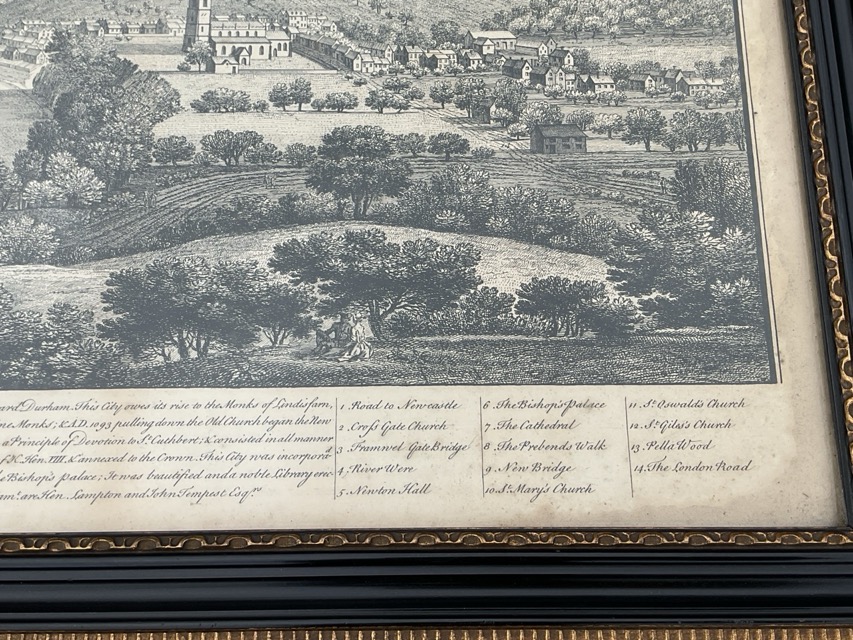 ard Durham. This City owes its rise to the Monks of Lindisfarn,
ne Monks, & A.D. 1093 pulling down the Old Church began the New
a Principle of Devotion to St. Cuthbert; & consisted in all manner
f K. Hen. VIII. & annexed to the Crown. This City was incorporatd
e Bishop's Palace; It was beautified and a noble Library erec-
amt. are Hen. Lampton and John Tempest Esqrs.
1. Road to Newcastle
2. Croſs Gate Church
3. Framwel Gate Bridge
4. River Were
5. Newton Hall
6. The Bishop's Palace
7. The Cathedral
8. The Prebends Walk
9. New Bridge
10. St. Mary's Church
11. St. Oswald's Church
12. St. Giles's Church
13. Pella Wood
14. The London Road